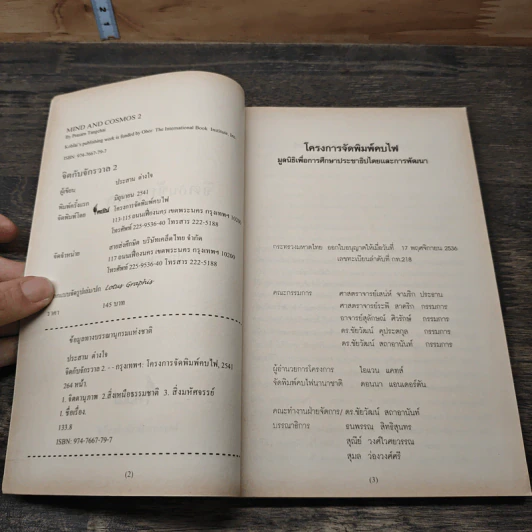 MIND AND COSMOS 2
By Prasarn Tangchai
Kobfai's publishing work is funded by Oner The International Book Institute, Inc.
ISBN: 974-7667-79-7
จิตกับจักรวาล 2
ผู้เขียน ประสาน ต่างใจ
พิมพ์ครั้งแรก มิถุนายน 2541
จัดพิมพ์โดย โครงการจัดพิมพ์คบไฟ
113-115 ถนนเฟื่องนคร เขตพระนคร กรุงเทพฯ 10200
โทรศัพท์ 225-9536-40 โทรสาร 222-5188
จัดจำหน่าย สายส่งศึกษิต บริษัทเคล็ดไทย จำกัด
117 ถนนเฟื่องนคร เขตพระนคร กรุงเทพฯ 10200
โทรศัพท์ 225-9536-40 โทรสาร 222-5188
ออกแบบจัดรูปเล่ม/ปก Lotus Graphic
ราคา 145 บาท
ข้อมูลทางบรรณานุกรมแห่งชาติ
ประสาน ต่างใจ
จิตกับจักรวาล 2.--กรุงเทพฯ: โครงการจัดพิมพ์คบไฟ, 2541
264 หน้า.
1. จิตตานุภาพ 2.สิ่งเหนือธรรมชาติ 3. สิ่งมหัศจรรย์
1. ชื่อเรื่อง.
133.8
ISBN: 974-7667-79-7
(2)
โครงการจัดพิมพ์คบไฟ
มูลนิธิเพื่อการศึกษาประชาธิปไตยและการพัฒนา
กระทรวงมหาดไทย ออกใบอนุญาตให้เมื่อวันที่ 17 พฤศจิกายน 2536
เลขทะเบียนลำดับที่ กท.218
คณะกรรมการ ศาสตราจารย์เสน่ห์ จามริก ประธาน
ศาสตราจารย์ระพี สาคริก กรรมการ
อาจารย์สุลักษณ์ ศิวรักษ์ กรรมการ
ดร.ชัยวัฒน์ คุประตกุล กรรมการ
ดร.ชัยวัฒน์ สถาอานันท์ กรรมการ
ผู้อำนวยการโครงการ โอแวน แคทส์
จัดพิมพ์คบไฟนานาชาติ ดอนนา แอนเดอร์ตัน
คณะทำงานฝ่ายจัดการ/ ดร.ชัยวัฒน์ สถาอานันท์
บรรณาธิการ ธนพรรณ สิทธิสุนทร
สุณีย์ วงศ์ไวศยวรรณ
สุมล ว่องวงศ์ศรี
(3)